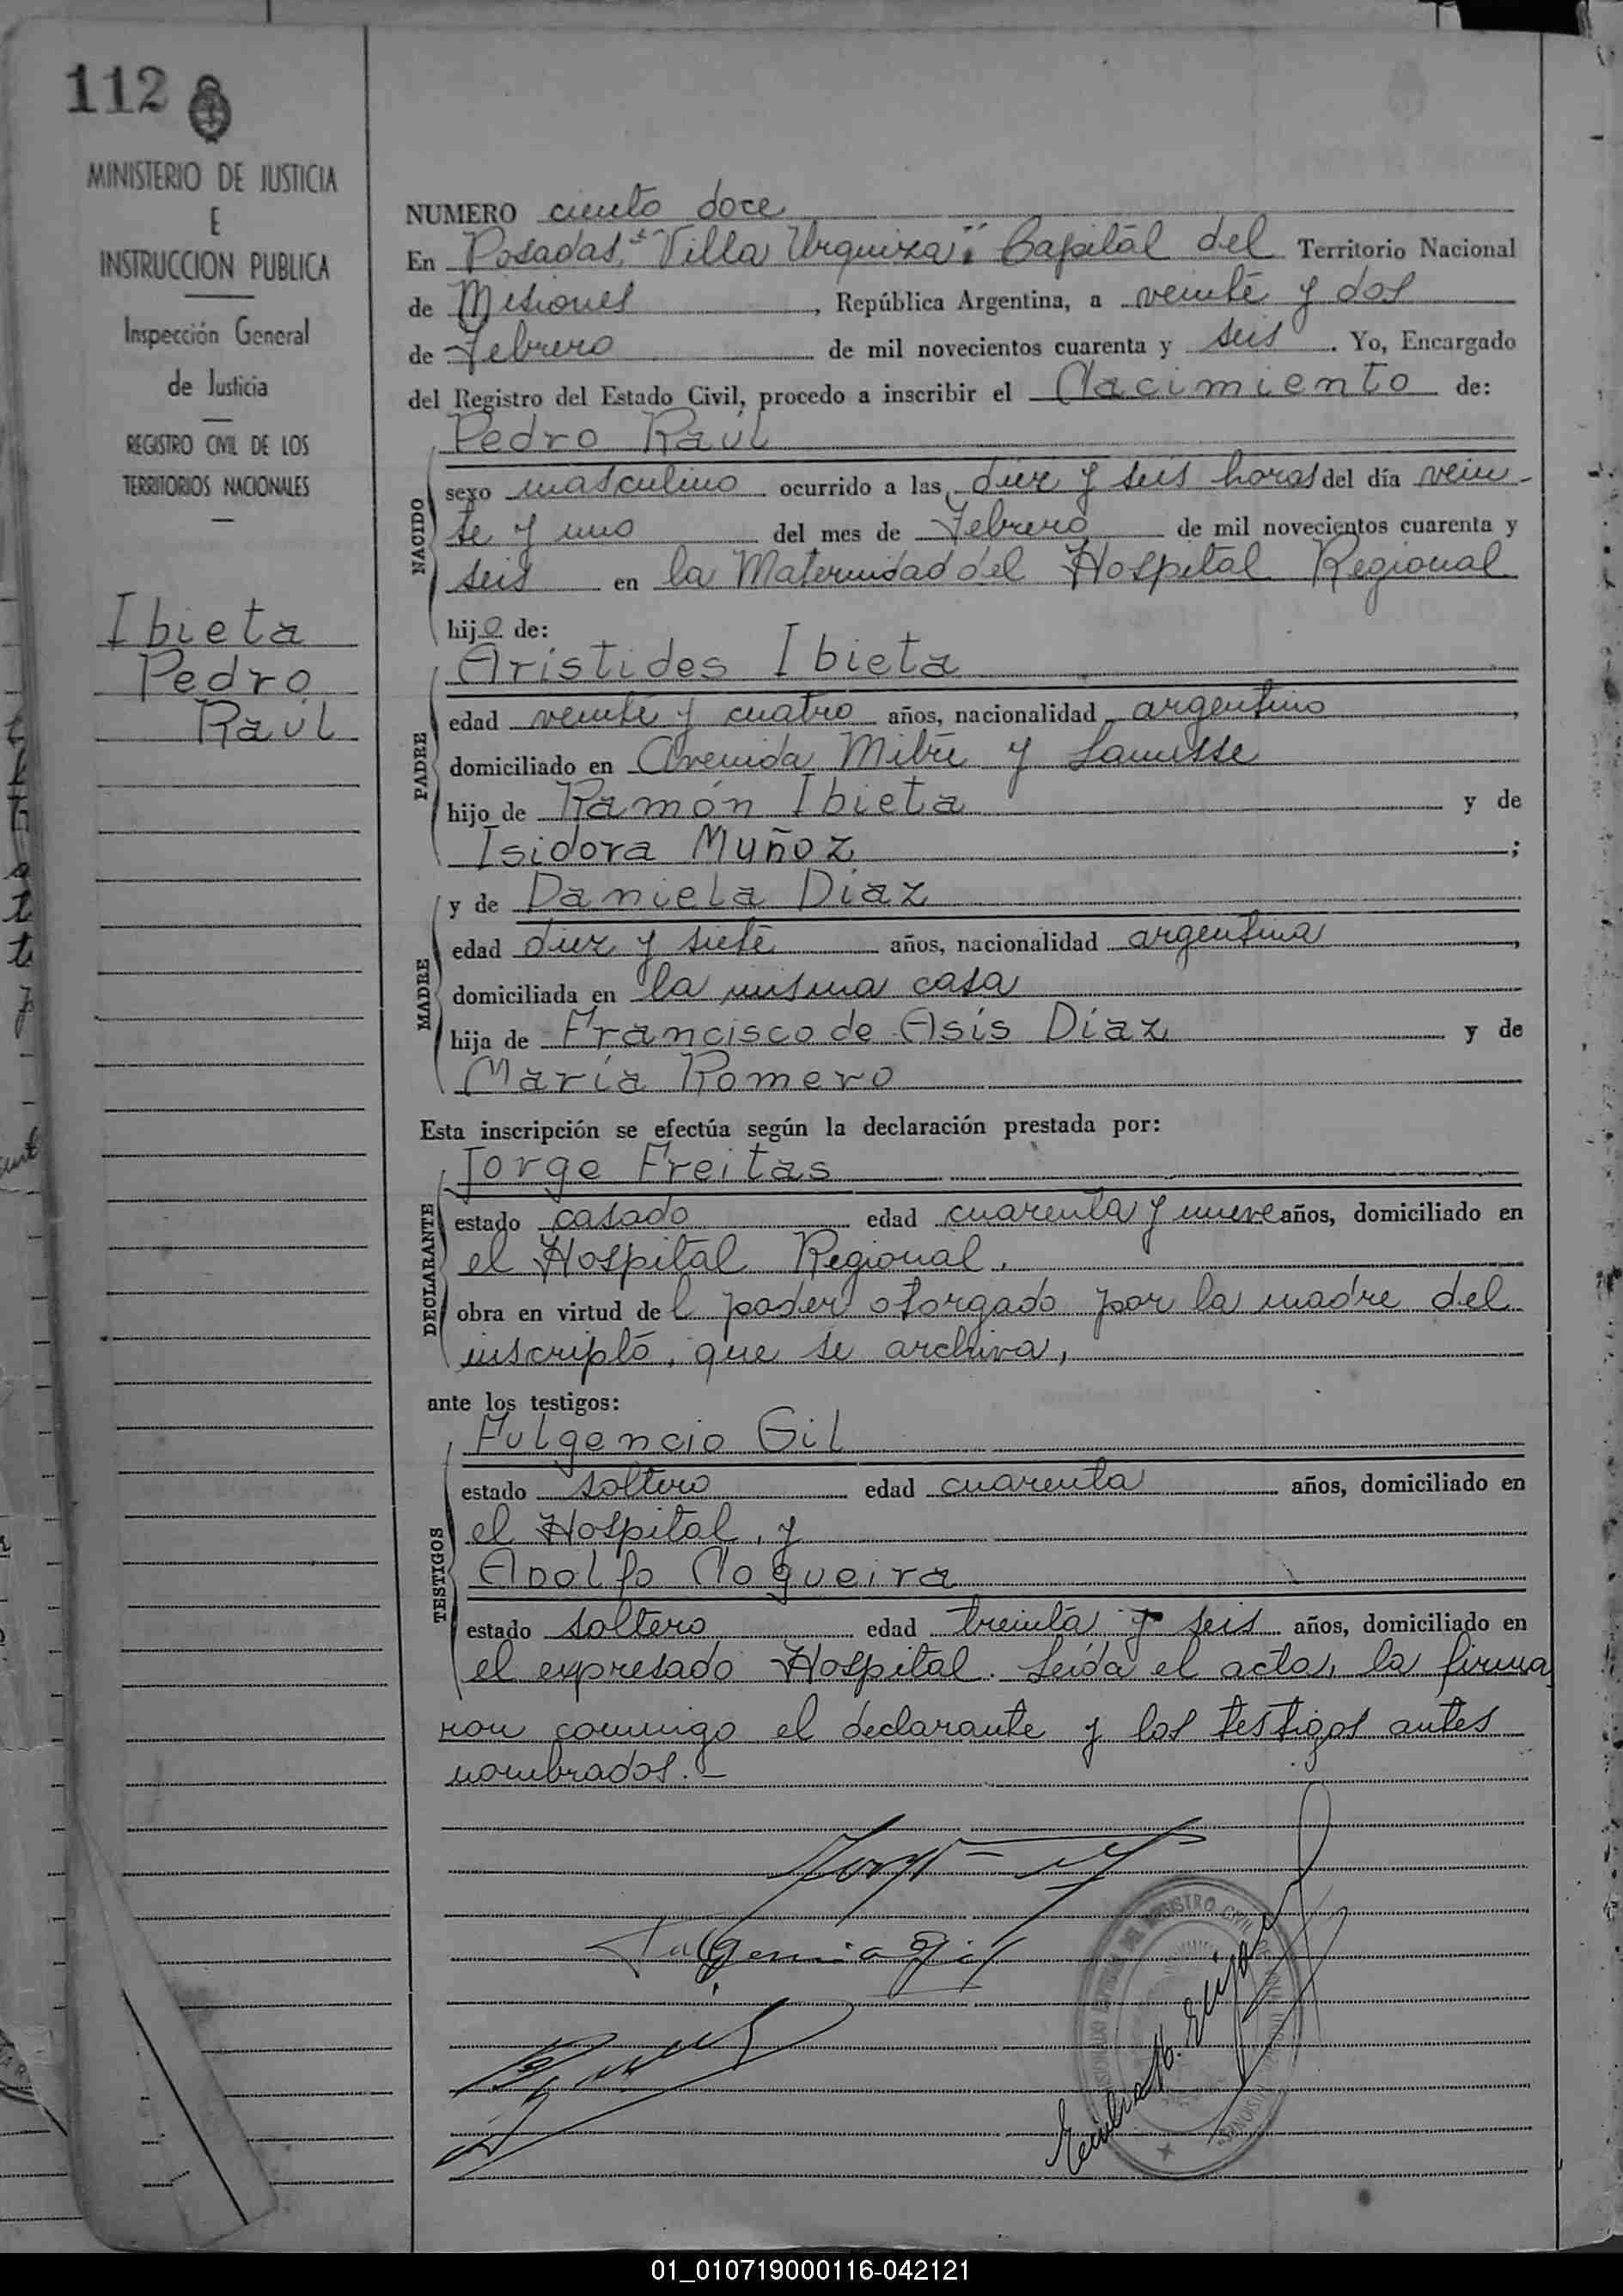 112
MINISTERIO DE JUSTICIA
E
INSTRUCCION PUBLICA
Inspección General
de Justicia
REGISTRO CIVIL DE LOS
TERRITORIOS NACIONALES
Ibieta
Pedro
Raúl
NUMERO ciento doce
En Posadas "Villa Urquiza", Capital del Territorio Nacional
de Misiones, República Argentina, a veinte y dos
de Febrero de mil novecientos cuarenta y seis. Yo, Encargado
del Registro del Estado Civil, procedo a inscribir el Nacimiento de:
Pedro Raúl
NACIDO
sexo masculino ocurrido a las diez y seis horas del día vein-
te y uno del mes de Febrero de mil novecientos cuarenta y
seis en la Maternidad del Hospital Regional
hijo de:
PADRE
Aristides Ibieta
edad veinte y cuatro años, nacionalidad argentino,
domiciliado en Avenida Mitre y Lanusse
hijo de Ramón Ibieta y de
Isidora Muñoz;
MADRE
y de Daniela Diaz
edad diez y siete años, nacionalidad argentina,
domiciliada en la misma casa
hija de Francisco de Asís Díaz y de
María Romero
Esta inscripción se efectúa según la declaración prestada por:
DECLARANTE
Jorge Freitas
estado casado edad cuarenta y nueve años, domiciliado en
el Hospital Regional,
obra en virtud del poder otorgado por la madre del
inscripto, que se archiva,
ante los testigos:
TESTIGOS
Fulgencio Gil
estado soltero edad cuarenta años, domiciliado en
el Hospital, y
Adolfo Nogueira
estado soltero edad treinta y seis años, domiciliado en
el expresado Hospital. Leída el acta, la firma
ron conmigo el declarante y los testigos antes
nombrados.-
REGISTRO CIVIL
MISIONES
01_010719000116-042121